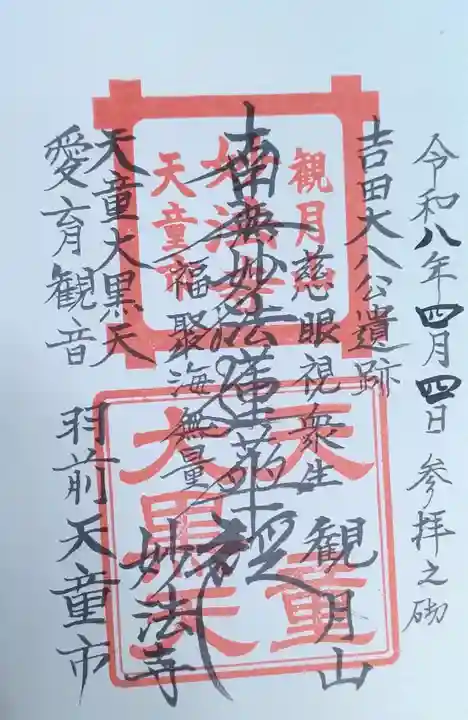 令和八年四月四日 参拝之砌
吉田大八公遺跡
観月山
慈眼視衆生
南無妙法蓮華経
福聚海無量
妙法寺
天童大黒天
愛育観音
羽前天童市
観月山
妙法寺
天童市
天童
大黒天